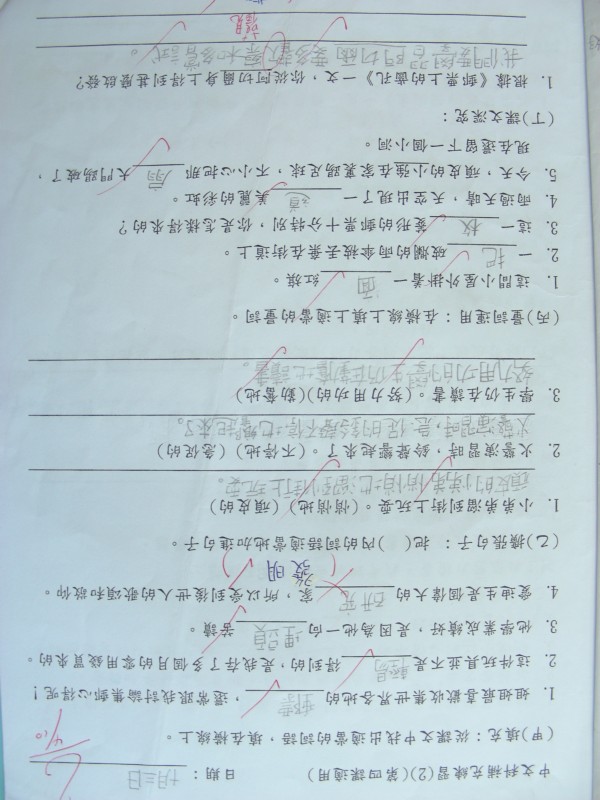 中文科補充練習(2)(第四課適用) 日期：十月三日
(甲)填充：從課文中找出適當的詞語，填在橫線上。
1. 姐姐最喜歡收集世界各地的 郵票 ，還常跟我討論集郵心得呢！
2. 這件玩具並不是 輕易 得到的，是我存了多個月的零用錢買來的。
3. 他學業成績好，是因為他一向 埋頭 苦讀。
4. 愛迪生是個偉大的 研究 家，所以受到後世人的歌頌和敬仰。
發明
(乙)擴張句子：把( )內的詞語適當地加進句子。
1. 小弟弟溜到街上玩耍。(悄悄地)(頑皮的)
頑皮的小弟弟悄悄地溜到街上玩耍。
2. 火警演習時，鈴聲響起來了。(不停地)(急促的)
火警演習時，急促的鈴聲不停地響起來了。
3. 學生仍在讀書。(努力用功的)(勤奮地)
努力用功的學生仍在勤奮地讀書。
(丙)量詞運用：在橫線上填上適當的量詞。
1. 這間小屋外掛着一 面 紅旗。
2. 一 把 破爛的雨傘被丟棄在街道上。
3. 這一 枚 菱形的郵票十分特別，你是怎樣得來的？
4. 雨過天晴，天空出現了一 道 美麗的彩虹。
5. 今天，頑皮的小強在家裏踢足球，不小心把那 扇 大門踢破了，
現在還留下一個小洞。
(丁)課文深究：
1. 根據《郵票上的齒孔》一文，你從阿切爾身上得到甚麼啟發？